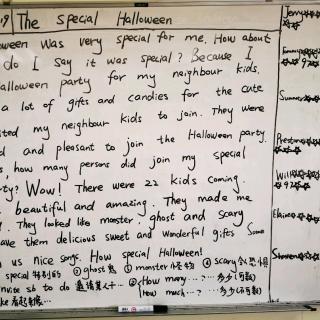 19 The Special Halloween
loween was very special for me. How about
do I say it was special? Because I
Halloween party for my neighbour kids.
a lot of gifts and candies for the cute
ited my neighbour kids to join. They were
d and pleasant to join the Halloween party.
s, how many persons did join my special
ty? Wow! There were 22 kids coming.
beautiful and amazing. They made me
They looked like monster, ghost and scary
ave them delicious sweet and wonderful gifts Some
us nice songs. How special Halloween!
special 特别的 ① ghost 鬼 ③ monster 怪物 ④ scary 令人恐惧
invite sb to do 邀请某人干… ② How many …?…多少(可数)
ke 看起来像… How much …? …多少(不可数)
Jerry☆☆☆
☆☆
☆☆ 92☆☆
Summer☆☆☆
Preston☆☆
☆☆☆
Will☆☆☆
☆92☆☆
Elaine☆
☆☆☆